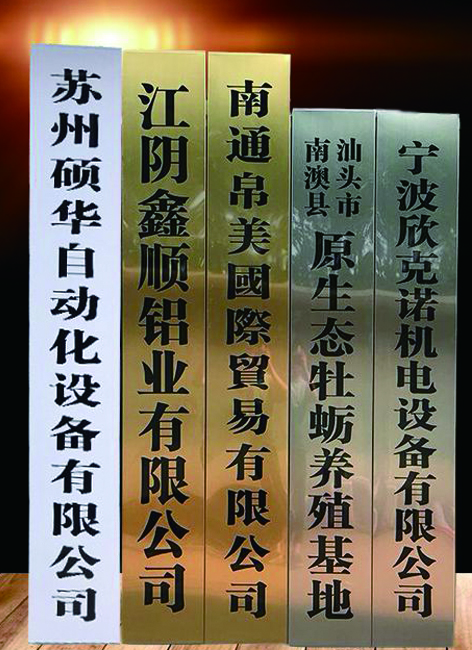 苏州硕华自动化设备有限公司
江阴鑫顺铝业有限公司
南通帛美國際貿易有限公司
汕头市
南澳县
原生态牡蛎养殖基地
宁波欣克诺机电设备有限公司